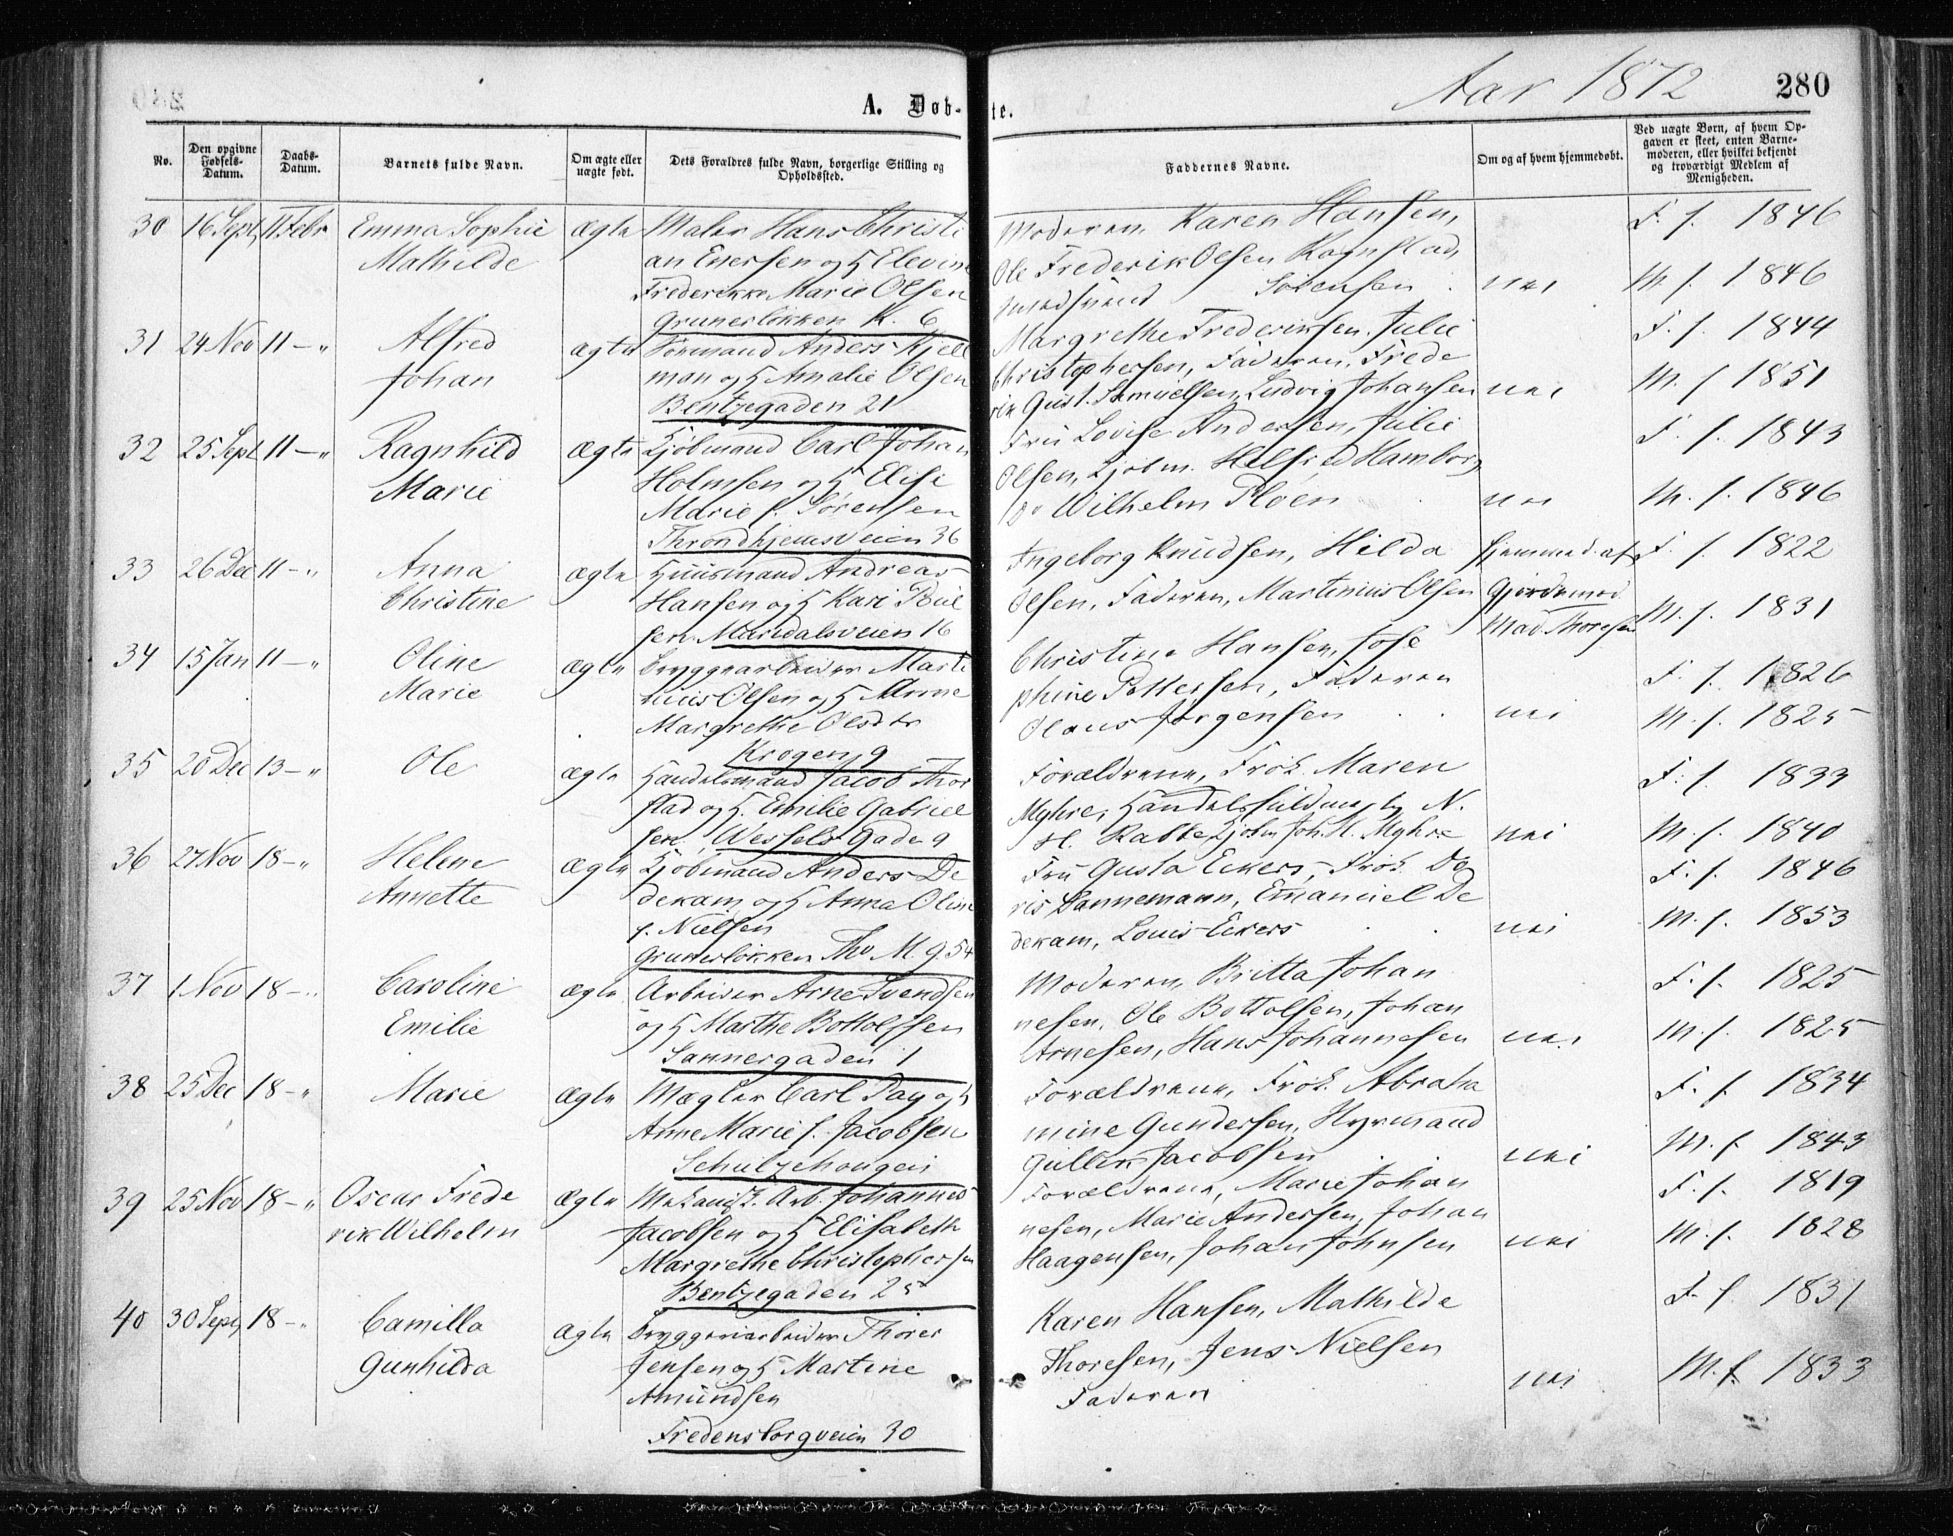 Aar 1872
280
A. Døb-
te.
No.
Den opgivne Fødsels-Datum.
Daabs-Datum.
Barnets fulde Navn.
Om ægte eller uægte født.
Dets Forældres fulde Navn, borgerlige Stilling og Opholdssted.
Faddernes Navne.
Om og af hvem hjemmedøbt.
Ved uægte Børn, af hvem Opgaven er skeet, enten Barnemoderen, eller hvilket bekjendt og troværdigt Medlem af Menigheden.
30 16 Sept 11 Febr Emma Sophie ægte Maler Hans Christi
Mathilde an Enersen og H Elevine
Frederikke Marie Olsen
Grunerløkken K. 6
Moderen, Karen Hansen,
Ole Frederik Olsen Ragnstad
Sørensen nei
F. f. 1846
M. f. 1846
31 24 Nov 11 — „ Alfred ægte Formand Anders Kjell
Johan man og H Amalie Olsen
Bentzegaden 21
Margrethe Frederiksen, Julie
Christophersen, Faderen, Frede
rik Gust. Samuelsen, Ludvig Johansen nei
F. f. 1844
M. f. 1851
32 25 Sept 11 — „ Ragnhild ægte Kjøbmand Carl Johan
Marie Holmsen og H Elise
Marie f. Sørensen
Throndhjemsveien 36
Fru Lovise Andersen, Julie
Olsen, Kjøbm. Helfred Hamborg
Do Wilhelm Pløen nei
F. f. 1843
M. f. 1846
33 26 Dec 11 — „ Anna ægte Huusmand Andreas
Christine Hansen og H Kari Poul
sen Maridalsveien 16
Ingeborg Knudsen, Hilda
Olsen, Faderen, Martinius Olsen
hjemmed. af
Gjordemod
Mad Thoresen
F. f. 1822
M. f. 1831
34 15 Jan 11 — „ Oline ægte Bryggearbeider Marti
Marie nius Olsen og H Anne
Margrethe Olsdtr
Krogen 9
Christine Hansen, Jose
phine Pettersen, Faderen
Olaus Jørgensen nei
F. f. 1826
M. f. 1825
35 20 Dec 13 — „ Ole ægte Handelsmand Jacob Thor
stad og H. Emilie Gabriel
sen, Wessels Gade 9
Forældrene, Frøk. Maren
Myhre, Handelsfuldmægtig N.
H. Rabbe, Kjøbm Joh. M. Myhre nei
F. f. 1833
M. f. 1840
36 27 Nov 18 — „ Helene ægte Kjøbmand Anders De
Annette dekam og H Anna Oline
f. Nielsen
Grunerløkken Tho M. g. 54
Fru Gusta Eckers, Frøk. Do
ris Dannemann, Emanuel De
dekam, Louis Eckers nei
F. f. 1846
M. f. 1853
37 1 Nov 18 — „ Caroline ægte Arbeider Arne Svendsen
Emilie og H Marthe Bottolfsen
Sannergaden 1
Moderen, Britta Johan
nesen, Ole Bottolsen, Johan
Arnesen, Hans Johannesen nei
F. f. 1825
M. f. 1825
38 25 Dec 18 — „ Marie ægte Mægler Carl Pay og H
Anne Marie f. Jacobsen
Schultzehougen
Forældrene, Frøk. Abraha
mine Gundersen, Styrmand
Gullik Jacobsen nei
F. f. 1834
M. f. 1843
39 25 Nov 18 — „ Oscar Frede ægte Mekanisk. Arb. Johannes
rik Wilhelm Jacobsen og H Elisabeth
Margrethe Christophersen
Bentzegaden 25
Forældrene, Marie Johan
nesen, Marie Andersen, Johan
Haagensen, Johan Johnsen nei
F. f. 1819
M. f. 1828
40 30 Sept 18 — „ Camilla ægte Bryggeriarbeider Thorer
Gunhilda Jensen og H Martine
Amundsen
Fredensborgveien 30
Karen Hansen, Mathilde
Thoresen, Jens Nielsen
Faderen nei
F. f. 1831
M. f. 1833